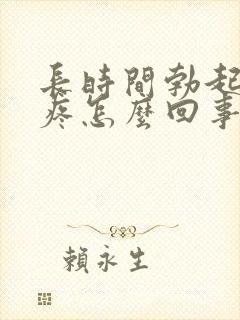 長時間勃起
疼怎麼回事
賴永生